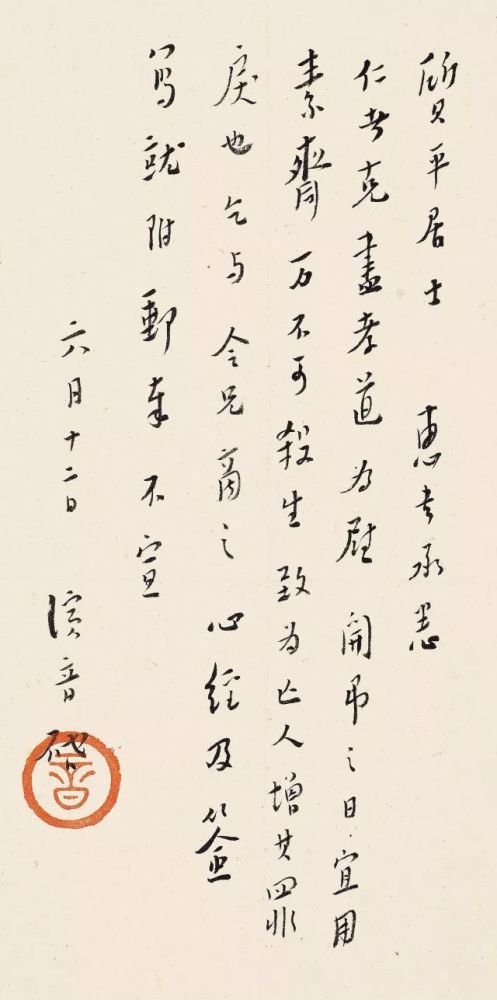 质平居士 惠书承悉
仁者克盡孝道为慰 開弔之日宜用
素齋万不可殺生致为亡人增其罪
戾也乞与令兄商之心經及签
寫就附郵奉不宣
六月十二日 演音啓